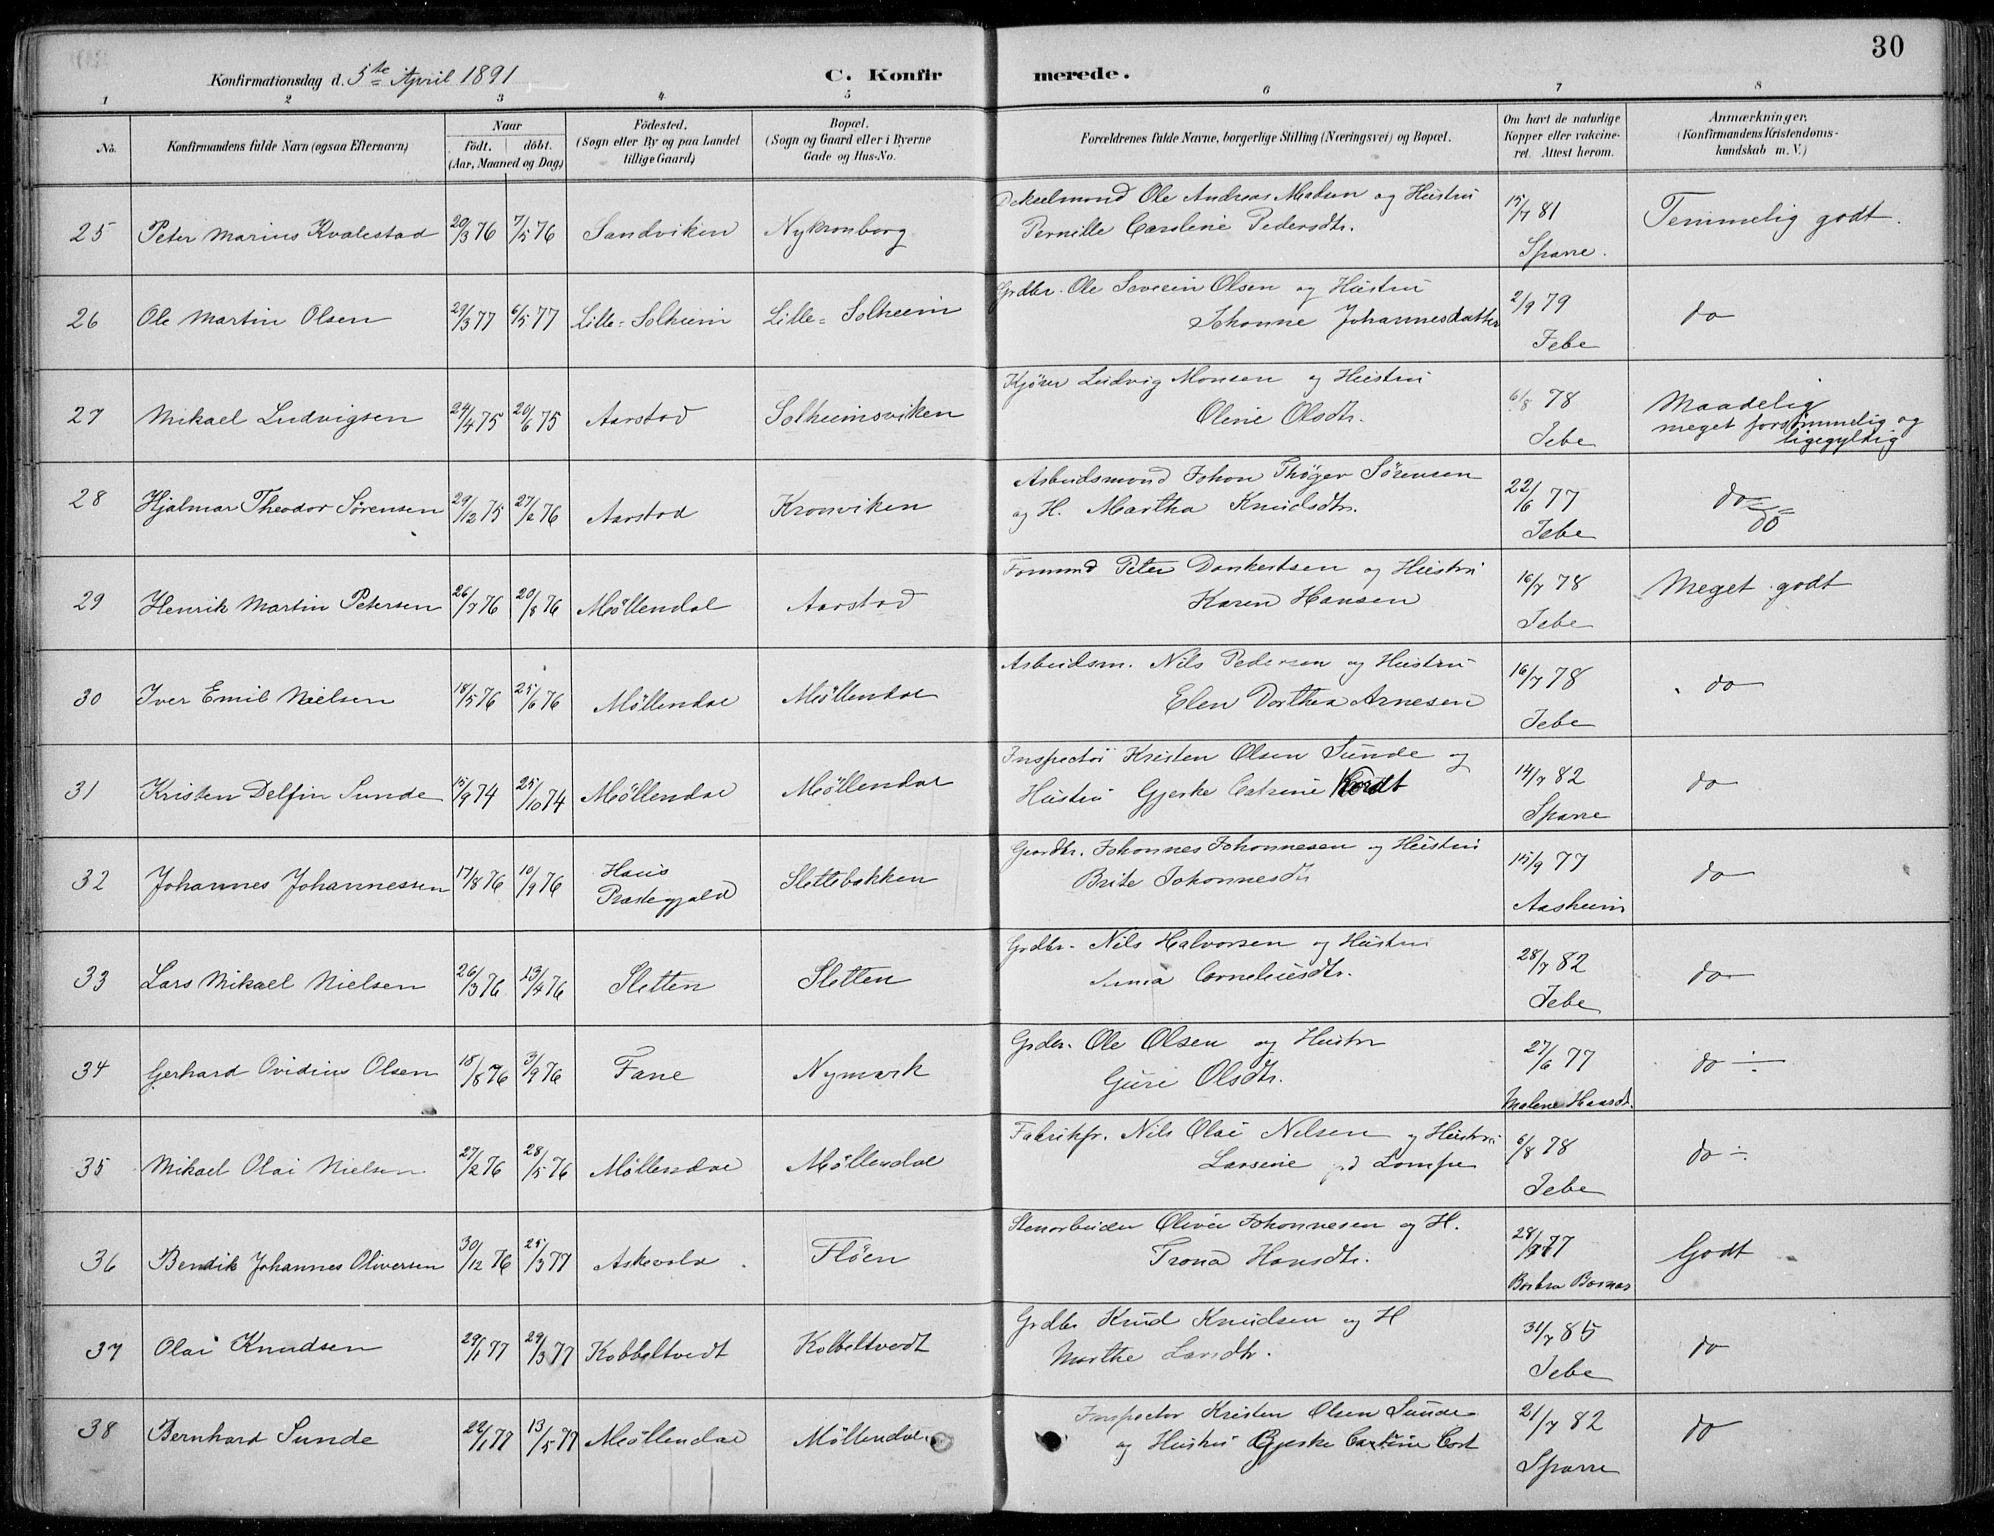 30
Konfirmationsdag d. 5te April 1891
C. Konfirmerede.
1 2 3 4 5 6 7 8
No.
Konfirmandens fulde Navn (ogsaa Efternavn)
Naar
födt. döbt.
(Aar, Maaned og Dag)
Födested.
(Sogn eller By og paa Landet
tillige Gaard)
Bopæl.
(Sogn og Gaard eller i Byerne
Gade og Hus-No.
Forældrenes fulde Navne, borgerlige Stilling (Næringsvei) og Bopæl.
Om havt de naturlige
Kopper eller vakcine-
ret. Attest herom.
Anmærkninger.
(Konfirmandens Kristendoms-
kundskab m. V.)
25 Peter Marius Kvalestad 20/3 76 7/5 76 Sandviken Nykronborg
Ole Andreas Madsen og Hustru
Pernille Caroline Pedersdtr.
15/7 81
Sparre.
Temmelig godt.
26 Ole Martin Olsen 29/3 77 6/5 77 Lille-Solheim Lille-Solheim
Grdbr. Ole Severin Olsen og Hustru
Johanne Johannesdatter
2/9 79
Jebe
do
27 Mikael Ludvigsen 24/4 75 20/6 75 Aarstad Solheimsviken
Kjører Ludvig Monsen og Hustru
Oline Olsdtr.
6/8 78
Jebe
Maadelig
meget forsømmelig og
ligegyldig
28 Hjalmar Theodor Sørensen 29/12 75 27/2 76 Aarstad Kronviken
Arbeidsmand Johan Thøger Sørensen
og H. Martha Knudsdtr.
22/6 77
Jebe
do
do
29 Henrik Martin Petersen 26/7 76 20/8 76 Møllendal Aarstad
Formand Peter Dankertsen og Hustru
Karen Hansen
16/7 78
Jebe
Meget godt
30 Iver Emil Nielsen 18/5 76 25/6 76 Møllendal Møllendal
Arbeidsm. Nils Pedersen og Hustru
Elen Dorthea Arnesen
16/7 78
Jebe
do
31 Kristen Delfin Sunde 15/9 74 25/10 74 Møllendal Møllendal
Inspector Kristen Olsen Sunde og
Hustru Gjeske Catrine Kordt
14/7 82
Sparre
do
32 Johannes Johannessen 17/8 76 10/9 76 Haus
Præstegjeld Slettebakken
Gaardbr. Johannes Johannesen og Hustru
Brite Johannesdtr
15/9 77
Aasheim
do
33 Lars Mikael Nielsen 26/3 76 13/4 76 Sletten Sletten
Grdbr. Nils Halvorsen og Hustru
Anna Corneliusdtr.
28/7 82
Jebe
do
34 Gerhard Ovidius Olsen 18/8 76 3/9 76 Fane Nymark
Grdbr. Ole Olsen og Hustru
Guri Olsdtr.
27/6 77
Malene Haardt.
do
35 Mikael Olai Nielsen 27/2 76 28/5 76 Møllendal Møllendal
Fabrikfr. Nils Olai Nilsen og Hustru
Larsine
6/8 78
Jebe
do
36 Bendik Johannes Oliversen 30/12 76 25/3 77 Askevold Fløen
Stenarbeider Oliver Johannesen og H.
Trona Hansdtr.
77
Godt
37 Olai Knudsen 29/1 77 29/3 77 Kobbeltvedt Kobbeltvedt
Grdbr Knud Knudsen og H
Marthe Larsdtr.
31/7 85
Jebe
do
38 Bernhard Sunde 22/1 77 13/5 77 Møllendal Møllendal
Inspector Kristen Olsen Sunde
og Hustru Gjeske Catrine Cort
21/7 82
Sparre
do